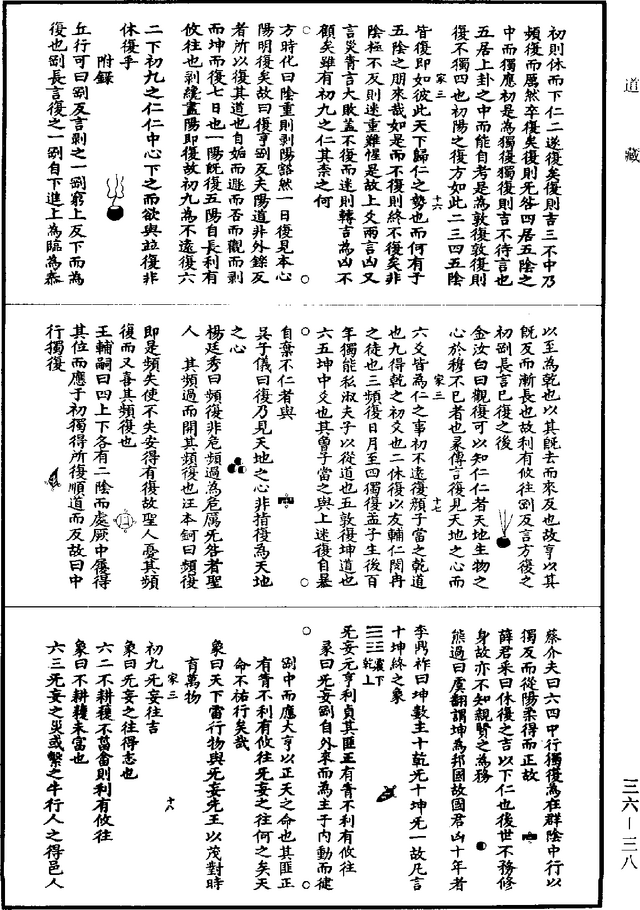 道藏
初則休而下仁二遂復矣復則吉三不中乃
頻復而厲然卒復矣復則无咎四居五陰之
中而獨應初是為獨復獨復則吉不待言也
五居上卦之中而能自考是為敦復敦復則
復不獨四也初陽之復方如此二三四五陰
家三 十六
皆復即如彼此天下歸仁之勢也而何有于
五陰之朋來哉如是而不復則終不復矣非
陰極不反則迷重難惺是故上爻兩言凶又
言災眚言大敗蓋不復而迷則轉吉為凶不
顧矣雖有初九之仁其柰之何
方時化曰陰重則剥陽豁然一日復見本心
陽明復矣故曰復亨剛反夫陽道非外鑠反
者所以復其道也自姤而遯而否而觀而剥
而坤而復七日也一陽旣復五陽自長利有
攸往也剥纔盡陽即復故初九為不遠復六
二下初九之仁仁中心下之而欲與竝復非
休復乎
附錄
丘行可曰剛反言剥之一剛窮上反下而為
復也剛長言復之一剛自下進上為臨為泰
以至為乾也以其旣去而來反也故亨以其
旣反而漸長也故利有攸往剛反言方復之
初剛長言已復之後
金汝白曰觀復可以知仁仁者天地生物之
心於穆不已者也彖傳言復見天地之心而
家三 十七
六爻皆為仁之事初不遠復顏子當之乾道
也九得乾之初爻也二休復以友輔仁閔冉
之徒也三頻復日月至四獨復孟子生後百
年獨能私淑夫子以從道也五敦復坤道也
六五坤中爻也其曾子當之與上迷復自暴
自棄不仁者與
吳子儀曰復乃見天地之心非指復為天地
之心
楊廷秀曰頻復非危頻過為危厲无咎者聖
人其頻過而開其頻復也汪本鈳曰頻復
即是頻失使不失安得有復故聖人憂其頻
復而又喜其頻復也
王輔嗣曰四上下各有二陰而處厥中履得
其位而應于初獨得所復順道而反故曰中
行獨復
蔡介夫曰六四中行獨復為在群陰中行以
獨反而從陽柔得而正故
薛君采曰休復之吉以下仁也後世不務修
身故亦不知親賢之為務
熊過曰虞翻謂坤為邦國故國君凶十年者
李鼎祚曰坤數主十乾无十坤无一故凡言
十坤終之象
震下乾上
无妄元亨利貞其匪正有眚不利有攸往
彖曰无妄剛自外來而為主于內動而健
剛中而應大亨以正天之命也其匪正
有眚不利有攸往无妄之往何之矣天
命不祐行矣哉
象曰天下雷行物與无妄先王以茂對時
育萬物
家三 十八
初九无妄往吉
象曰无妄之往得志也
六二不耕穫不菑畬則利有攸往
象曰不耕穫未富也
六三无妄之災或繫之牛行人之得邑人
三六—三八